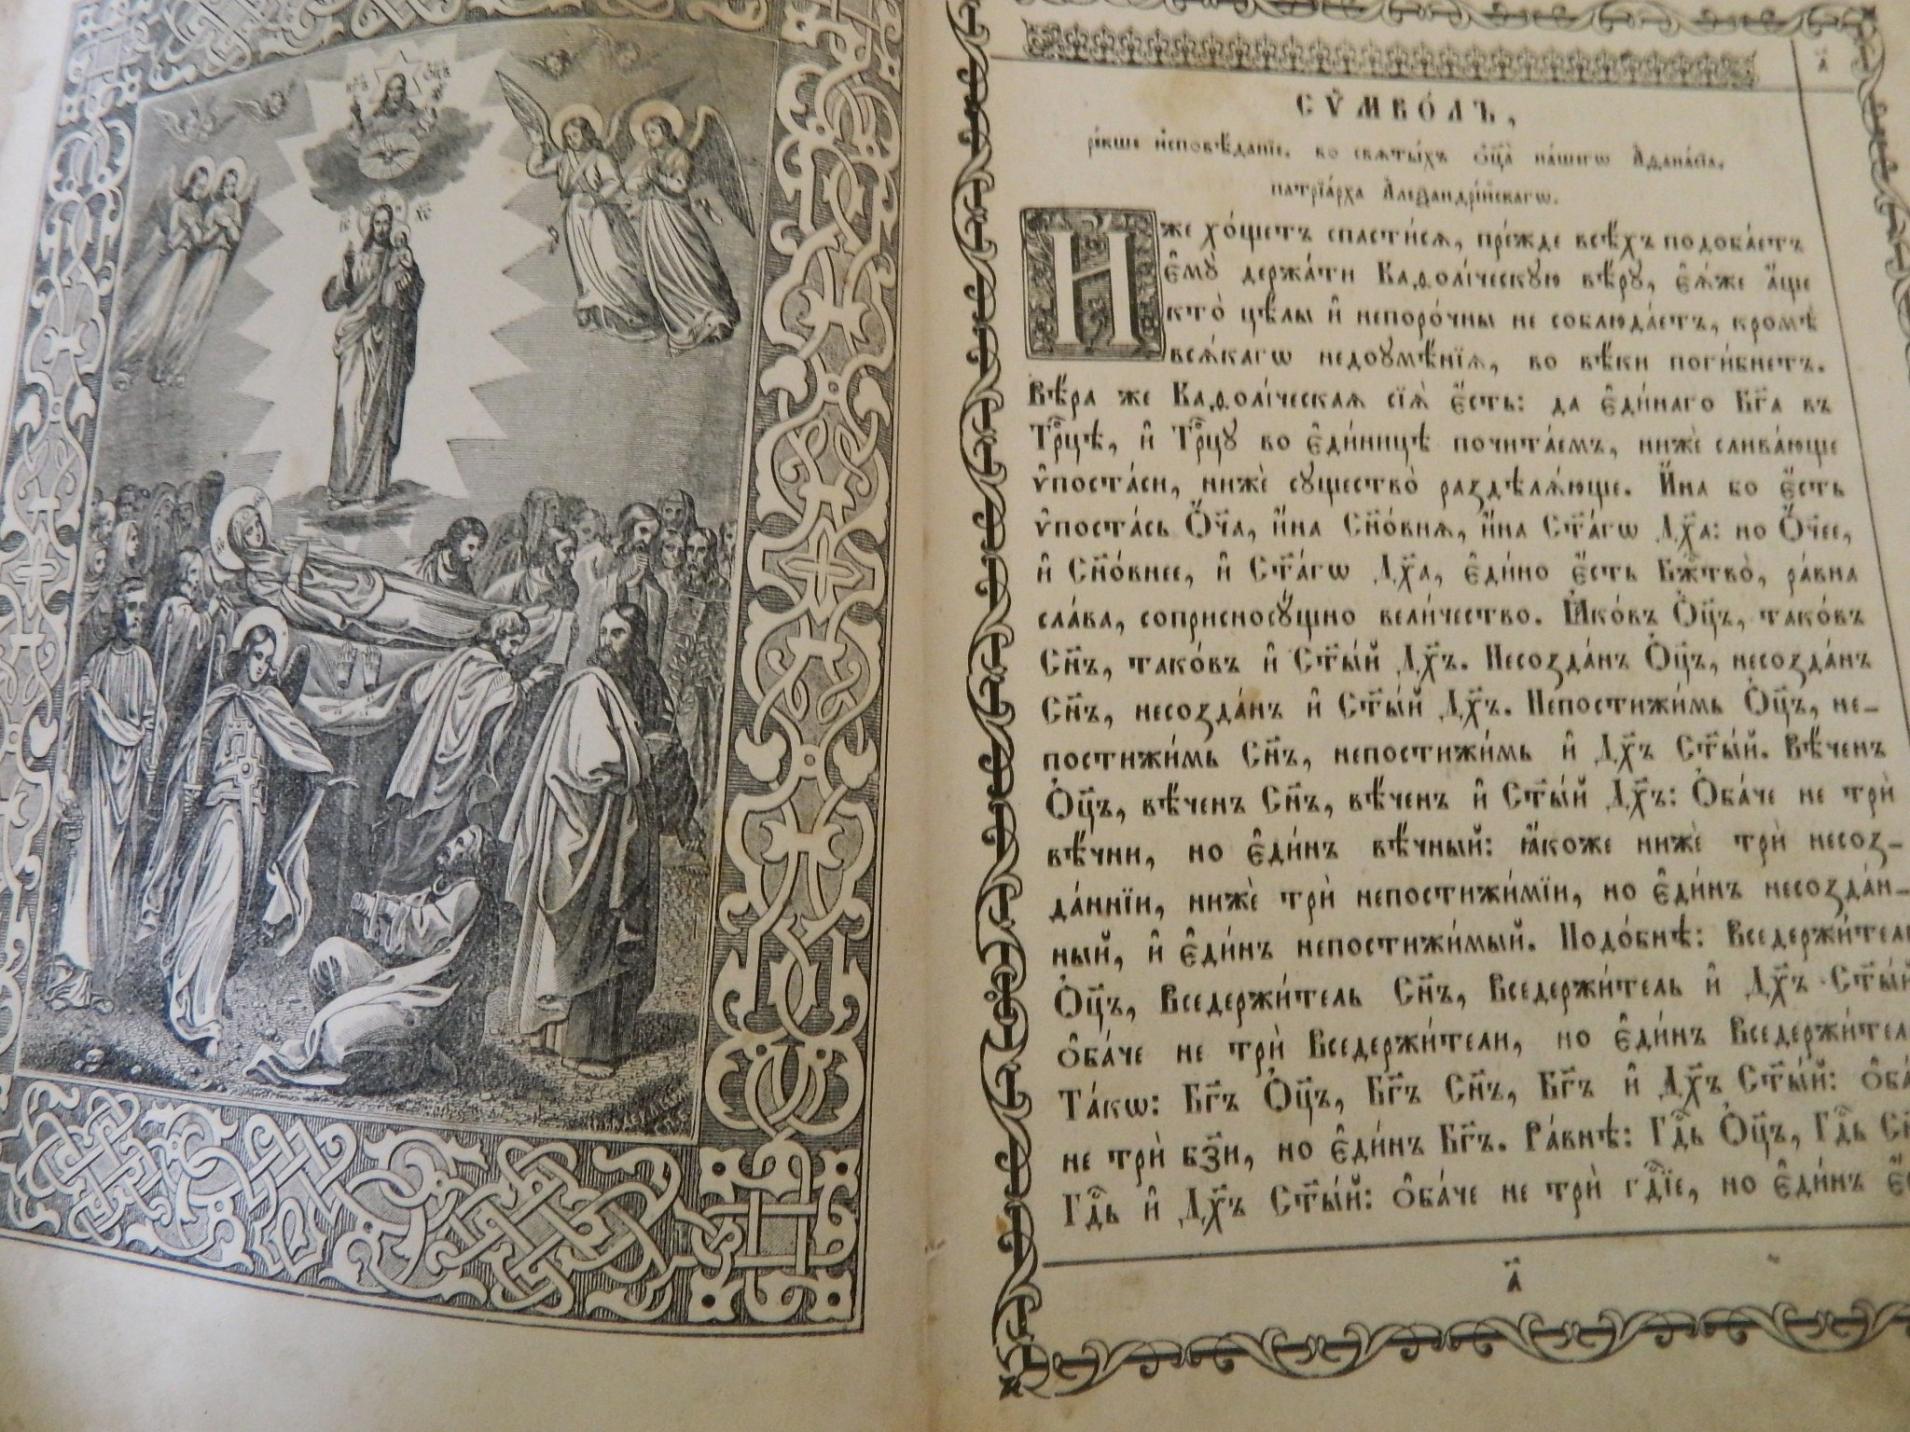 СѴ́МВО́ЛЪ,
рékше и҆сповѣ́данїе. во свѧты́хъ ѻ҆ц҃а̀ на́шегѡ А҆ѳана́сїа.
патрїа́рха А҆леѯандрі́йскагѡ.
И́же хо́щетъ спасти́сѧ, пре́жде всѣ́хъ подоба́етъ
є҆мꙋ̀ держа́ти Каѳолі́ческꙋю вѣ́рꙋ, є҆ѧ́же а҆́ще
кто̀ цѣ́лы и҆ непоро́чны не соблюда́етъ, кромѣ̀
всѧ́кагѡ недоꙋмѣ́нїѧ, во вѣ́ки поги́бнетъ.
Вѣ́ра же Каѳолі́ческаѧ сїѧ̀ є҆́сть: да є҆ди́наго Бг҃а въ
Трⷪ҇цѣ, и҆ Трⷪ҇цꙋ во є҆ди́ницѣ почита́емъ, нижѐ слива́юще
ѵ҆поста́си, нижѐ сꙋщество̀ раздѣлѧ́юще. И҆́на бо є҆́сть
ѵ҆поста́сь Ѻ҆́ч҃а, и҆́на Сн҃о́внѧ, и҆́на Ст҃а́гѡ Дх҃а: но Ѻ҆́ч҃ее,
и҆ Сн҃о́внее, и҆ Ст҃а́гѡ Дх҃а, є҆ди́но є҆́сть Бж҃тво̀, ра́вна
сла́ва, соприсносꙋ́щно вели́чество. Ꙗ҆ко́въ Ѻ҆ц҃ъ, тако́въ
Сн҃ъ, тако́въ и҆ Ст҃ы́й Дх҃ъ. Несозда́нъ Ѻ҆ц҃ъ, несозда́нъ
Сн҃ъ, несозда́нъ и҆ Ст҃ы́й Дх҃ъ. Непостижи́мь Ѻ҆ц҃ъ, не-
постижи́мь Сн҃ъ, непостижи́мь и҆ Дх҃ъ Ст҃ы́й. Вѣ́ченъ
Ѻ҆ц҃ъ, вѣ́ченъ Сн҃ъ, вѣ́ченъ и҆ Ст҃ы́й Дх҃ъ: Ѻ҆ба́че не трѝ
вѣ́чни, но є҆ди́нъ вѣ́чный: ꙗ҆́коже нижѐ трѝ несоз-
да́ннїи, нижѐ трѝ непостижи́мїи, но є҆ди́нъ несозда́н-
ный, и҆ є҆ди́нъ непостижи́мый. Подо́бнѣ: Вседержи́тель
Ѻ҆ц҃ъ, Вседержи́тель Сн҃ъ, Вседержи́тель и҆ Дх҃ъ Ст҃ы́й
ѻ҆ба́че не трѝ Вседержи́тели, но є҆ди́нъ Вседержи́тель
Та́кѡ: Бг҃ъ Ѻ҆ц҃ъ, Бг҃ъ Сн҃ъ, Бг҃ъ и҆ Дх҃ъ Ст҃ы́й: ѻ҆ба́
не трѝ бз҃и, но є҆ди́нъ Бг҃ъ. Ра́внѣ: Гдⷭ҇ь Ѻ҆ц҃ъ, Гдⷭ҇ь Сн҃
Гдⷭ҇ь и҆ Дх҃ъ Ст҃ы́й: ѻ҆ба́че не трѝ гдⷭ҇їе, но є҆ди́нъ є҆́с
а҃